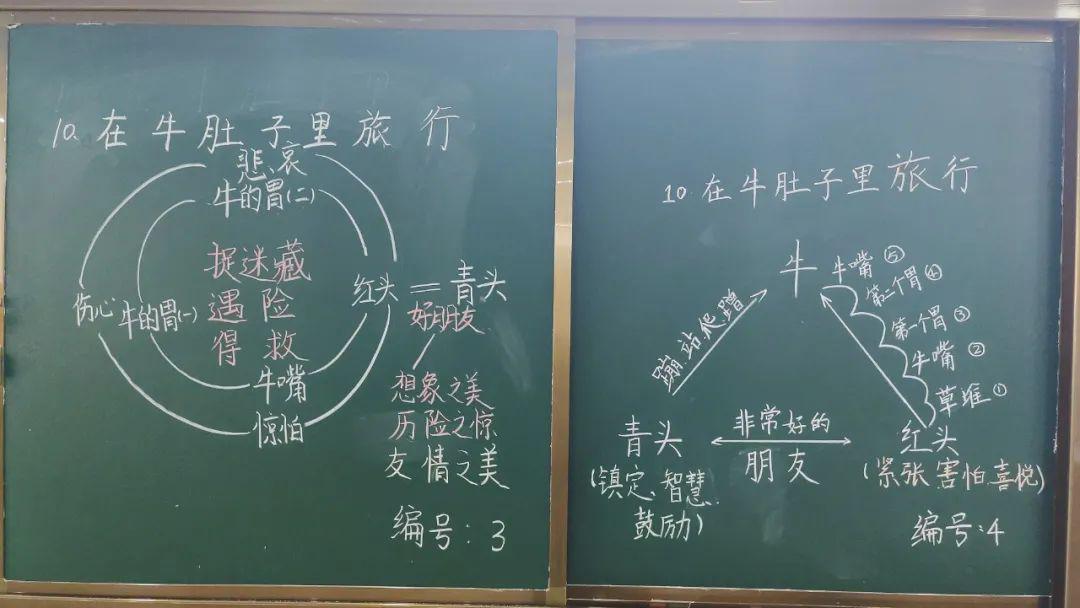 10.在牛肚子里旅行
悲哀
牛的胃(二)
捉迷藏
遇险
得救
伤心
牛的胃(一)
牛嘴
惊怕
红头=青头
好朋友
想象之美
历险之惊
友情之美
编号:3
10.在牛肚子里旅行
牛
牛嘴⑤
第二个胃④
第一个胃③
牛嘴②
草堆①
蹦站爬蹭
青头
(镇定、智慧、
鼓励)
非常好的
朋友
红头
(紧张、害怕、喜悦)
编号:4